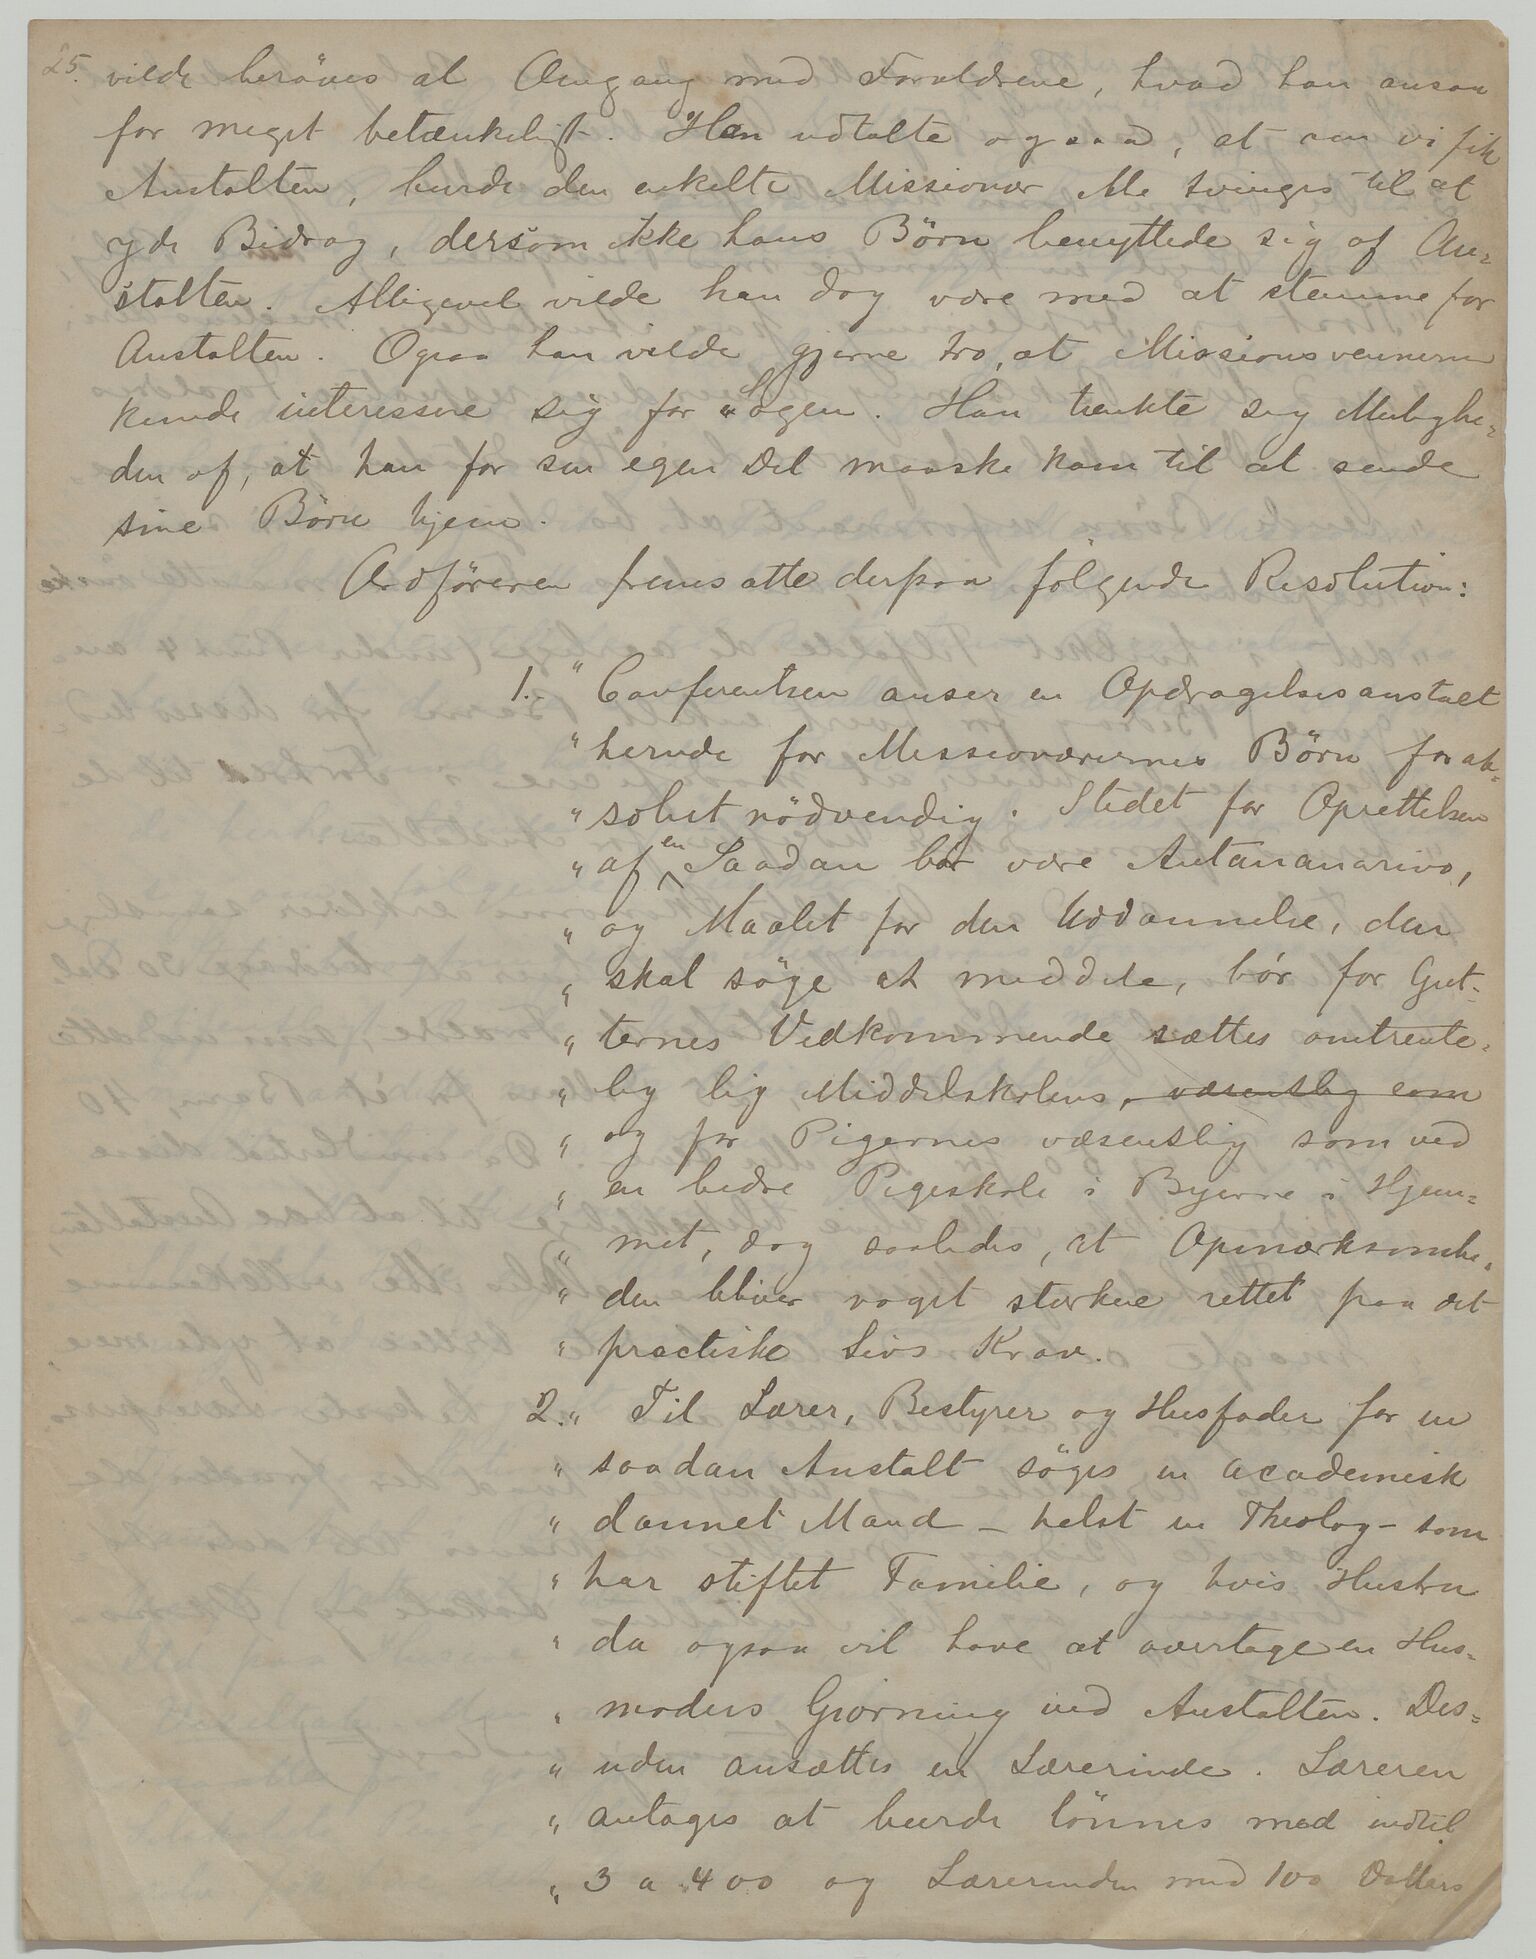 25. vilde berøves al Omgang med Forældrene, hvad han ansaa
for meget betænkeligt. Han udtalte ogsaa, at om vi fik
Anstalten, burde den enkelte Missionær ikke tvinges til at
yde Bidrag, dersom ikke hans Börn benyttede sig af An-
stalten. Alligevel vilde han dog være med at stemme for
Anstalten. Ogsaa han vilde gjerne tro, at Missionsvennerne
kunde interessere sig for Sagen. Han tænkte sig Mulighe-
den af, at han for sin egen Del maaske kom til at sende
sine Börn hjem.
Ordföreren fremsatte derpaa fölgende Resolution:
1. " Conferentsen anser en Opdragelsesanstalt
" herude for Missionærernes Börn for ab-
" solut nödvendig. Stedet for Oprettelsen
" af en Saadan bör være Antananarivo,
" og Maalet for den Uddannelse, den
" skal söge at meddele, bör for Gut-
" ternes Vedkommende sættes omtrente-
" lig lig Middelskolens, væsentlig som
" og for Pigernes væsentlig som ved
" en bedre Pigeskole i Byerne i Hjem-
" met, dog saaledes, at Opmærksomhe-
" den bliver noget stærkere rettet paa det
" practiske Livs Krav.
2. " Til Lærer, Bestyrer og Husfader for en
" saadan Anstalt söges en academisk
" dannet Mand - helst en Theolog - som
" har stiftet Familie, og hvis Hustru
" da ogsaa vil have at overtage en Hus-
" moders Gjerning ved Anstalten. Des-
" uden ansættes en Lærerinde. Læreren
" antages at burde lönnes med indtil
" 3 a 400 og Lærerinden med 100 Dollars